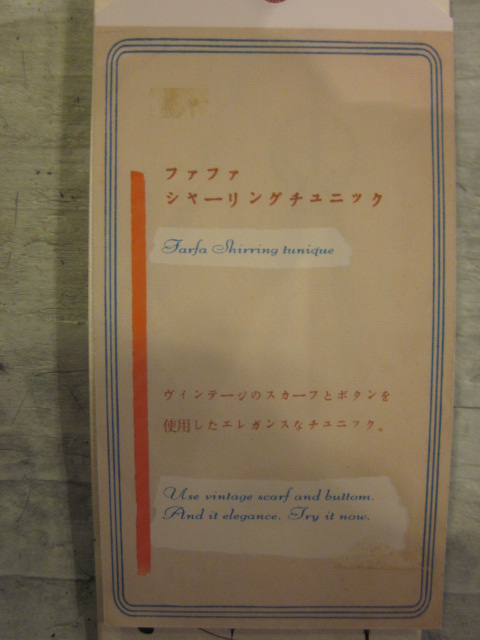 ファファ
シャーリングチュニック
Farfa Shirring tunique
ヴィンテージのスカーフとボタンを
使用したエレガンスなチュニック。
Use vintage scarf and buttom.
And it elegance. Try it now.